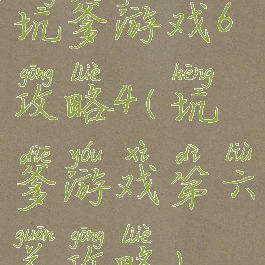 坑爹游戏6
gōng lüè kēng
攻略4(坑
diē yóu xì dì liù
爹游戏第六
guān gōng lüè
关攻略)